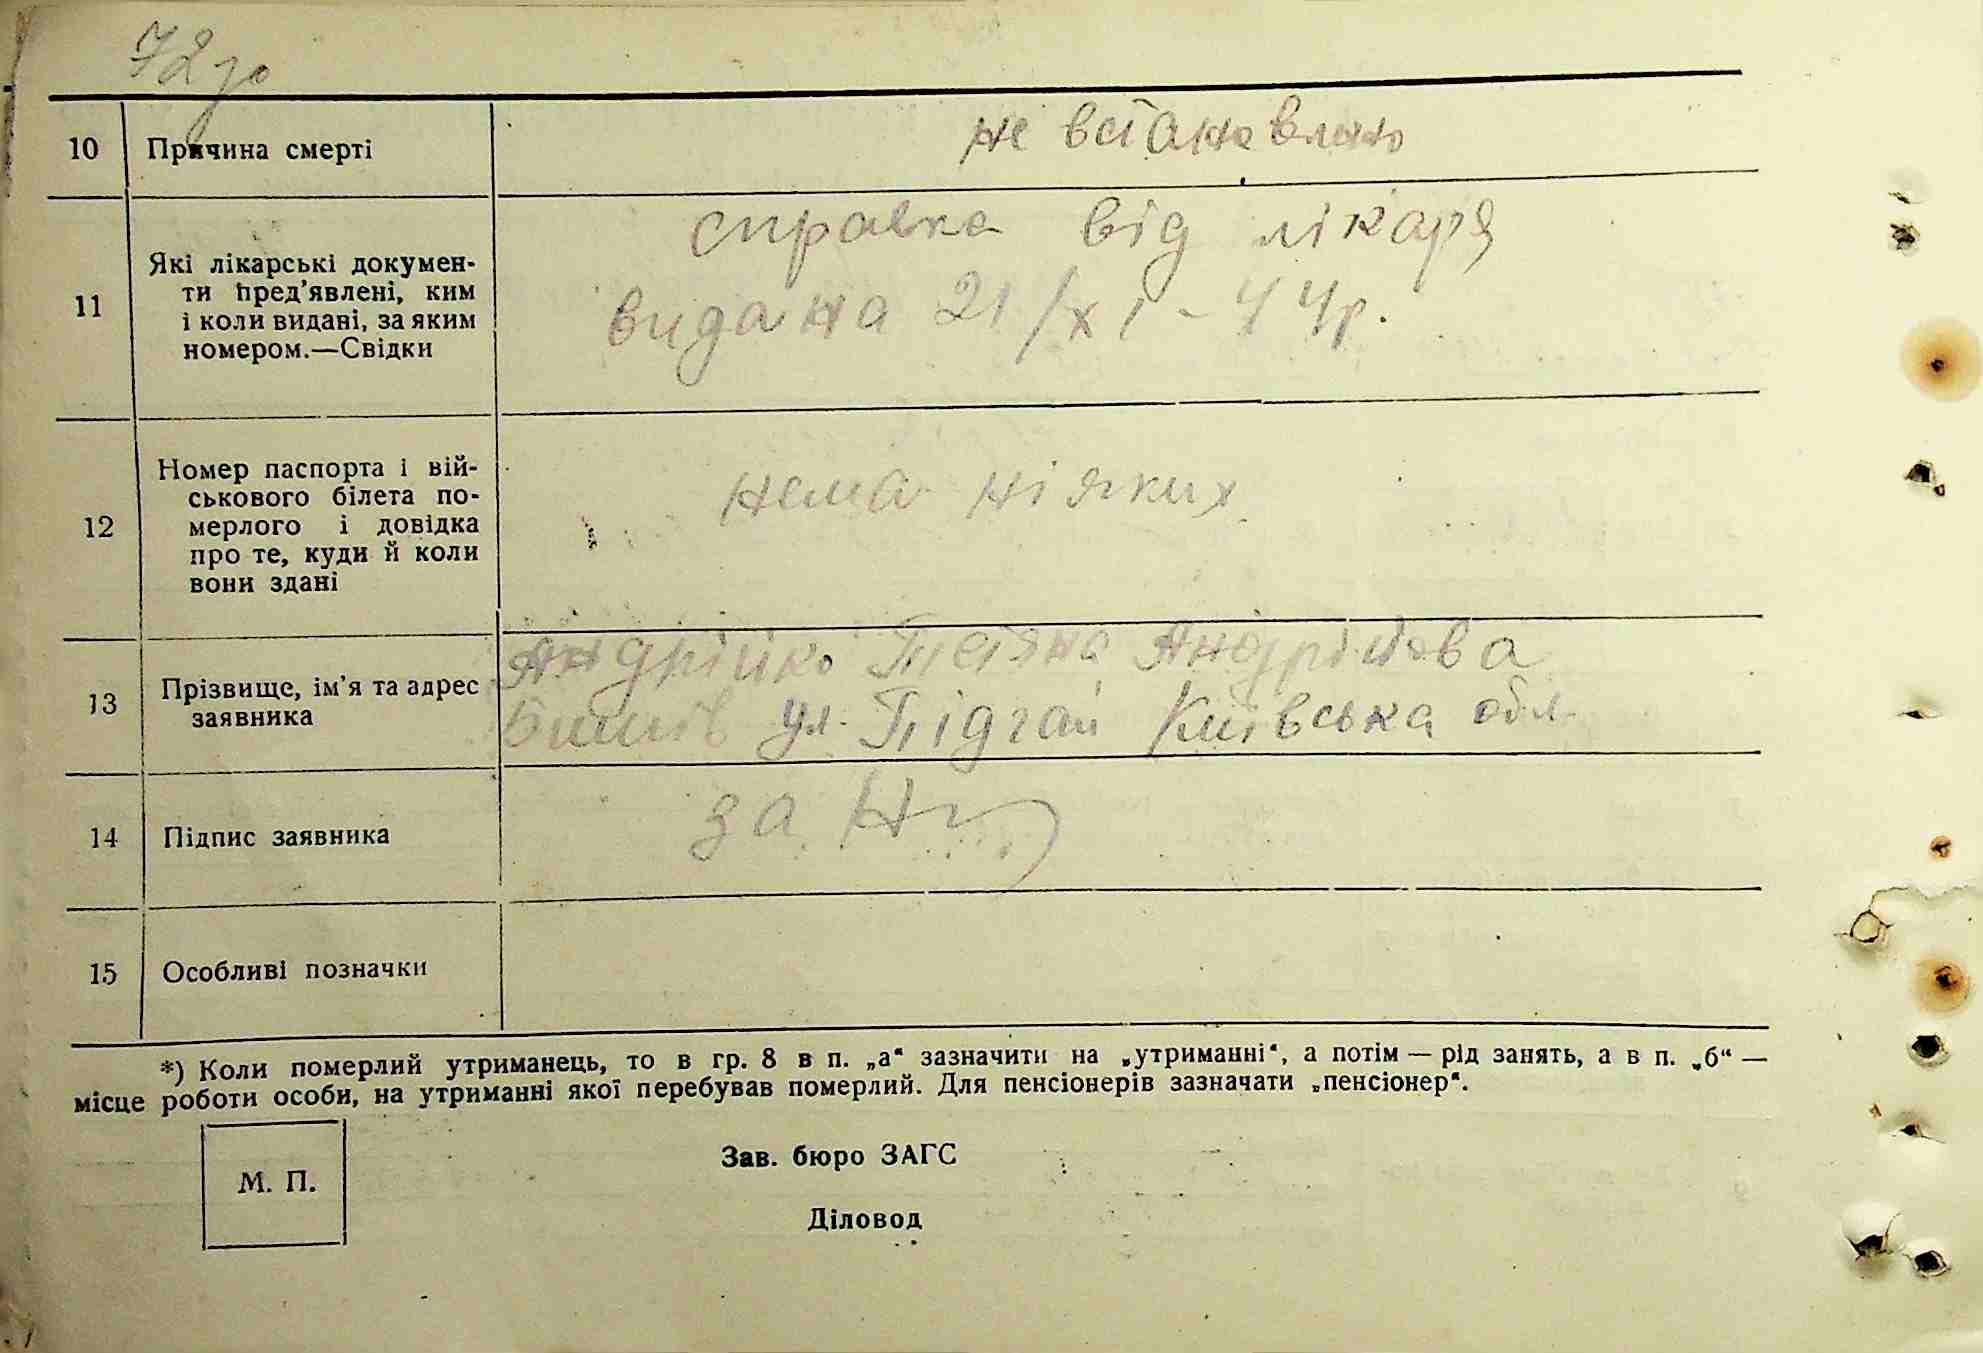 10 Причина смерті не встановлено
11 Які лікарські докумен-
ти пред'явлені, ким
і коли видані, за яким
номером.—Свідки
справка від лікаря
видана 21/XI - 44р.
12 Номер паспорта і вій-
ськового білета по-
мерлого і довідка
про те, куди й коли
вони здані
нема ніяких
13 Прізвище, ім'я та адрес
заявника
Андрійко Тетяна Андріївна
Бишів ул. Підгай Київська обл.
14 Підпис заявника за
15 Особливі позначки
*) Коли померлий утриманець, то в гр. 8 в п. „а“ зазначити на „утриманні“, а потім — рід занять, а в п. „б“ —
місце роботи особи, на утриманні якої перебував померлий. Для пенсіонерів зазначати „пенсіонер“.
М. П.
Зав. бюро ЗАГС
Діловод